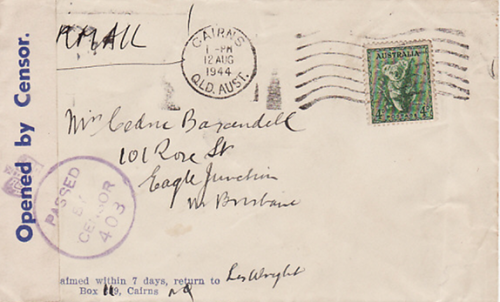 Opened by Censor.
AIR MAIL
CAIRNS
1-PM
12 AUG
1944
QLD. AUST.
AUSTRALIA
4 4
Mrs Cedric Baxendell
101 Rose St
Eagle Junction
nr Brisbane
PASSED
BY
CENSOR
403
aimed within 7 days, return to Les Wright
Box 119, Cairns NQ